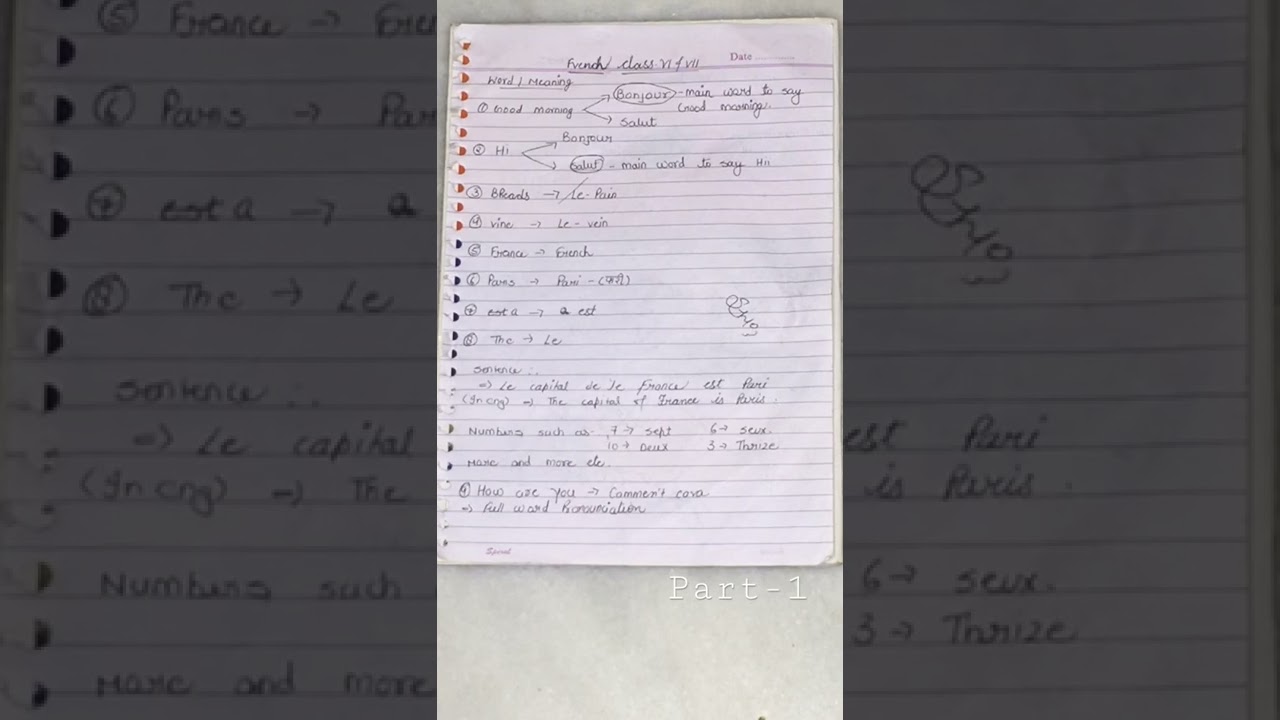 French class VI / VII
Date
Word / Meaning
① Good morning → Bonjour - main ward to say Good morning.
→ Salut
② Hi → Bonjour
→ Salut - main word to say Hii
③ BReads → Le-Pain
④ vine → Le-vein
⑤ France → French
⑥ Paris → Pari - (पारी)
⑦ est a → a est
⑧ The → Le
Sentence :.
⇒ Le capital de le France est Pari
(In eng) → The capital of France is Paris.
Numbers such as 7 → sept 6 → seux.
10 → Deux 3 → Thrize
More and more etc.
⑨ How are you → Comment cava
⇒ Full ward Pronunciation
Spiral
Part-1